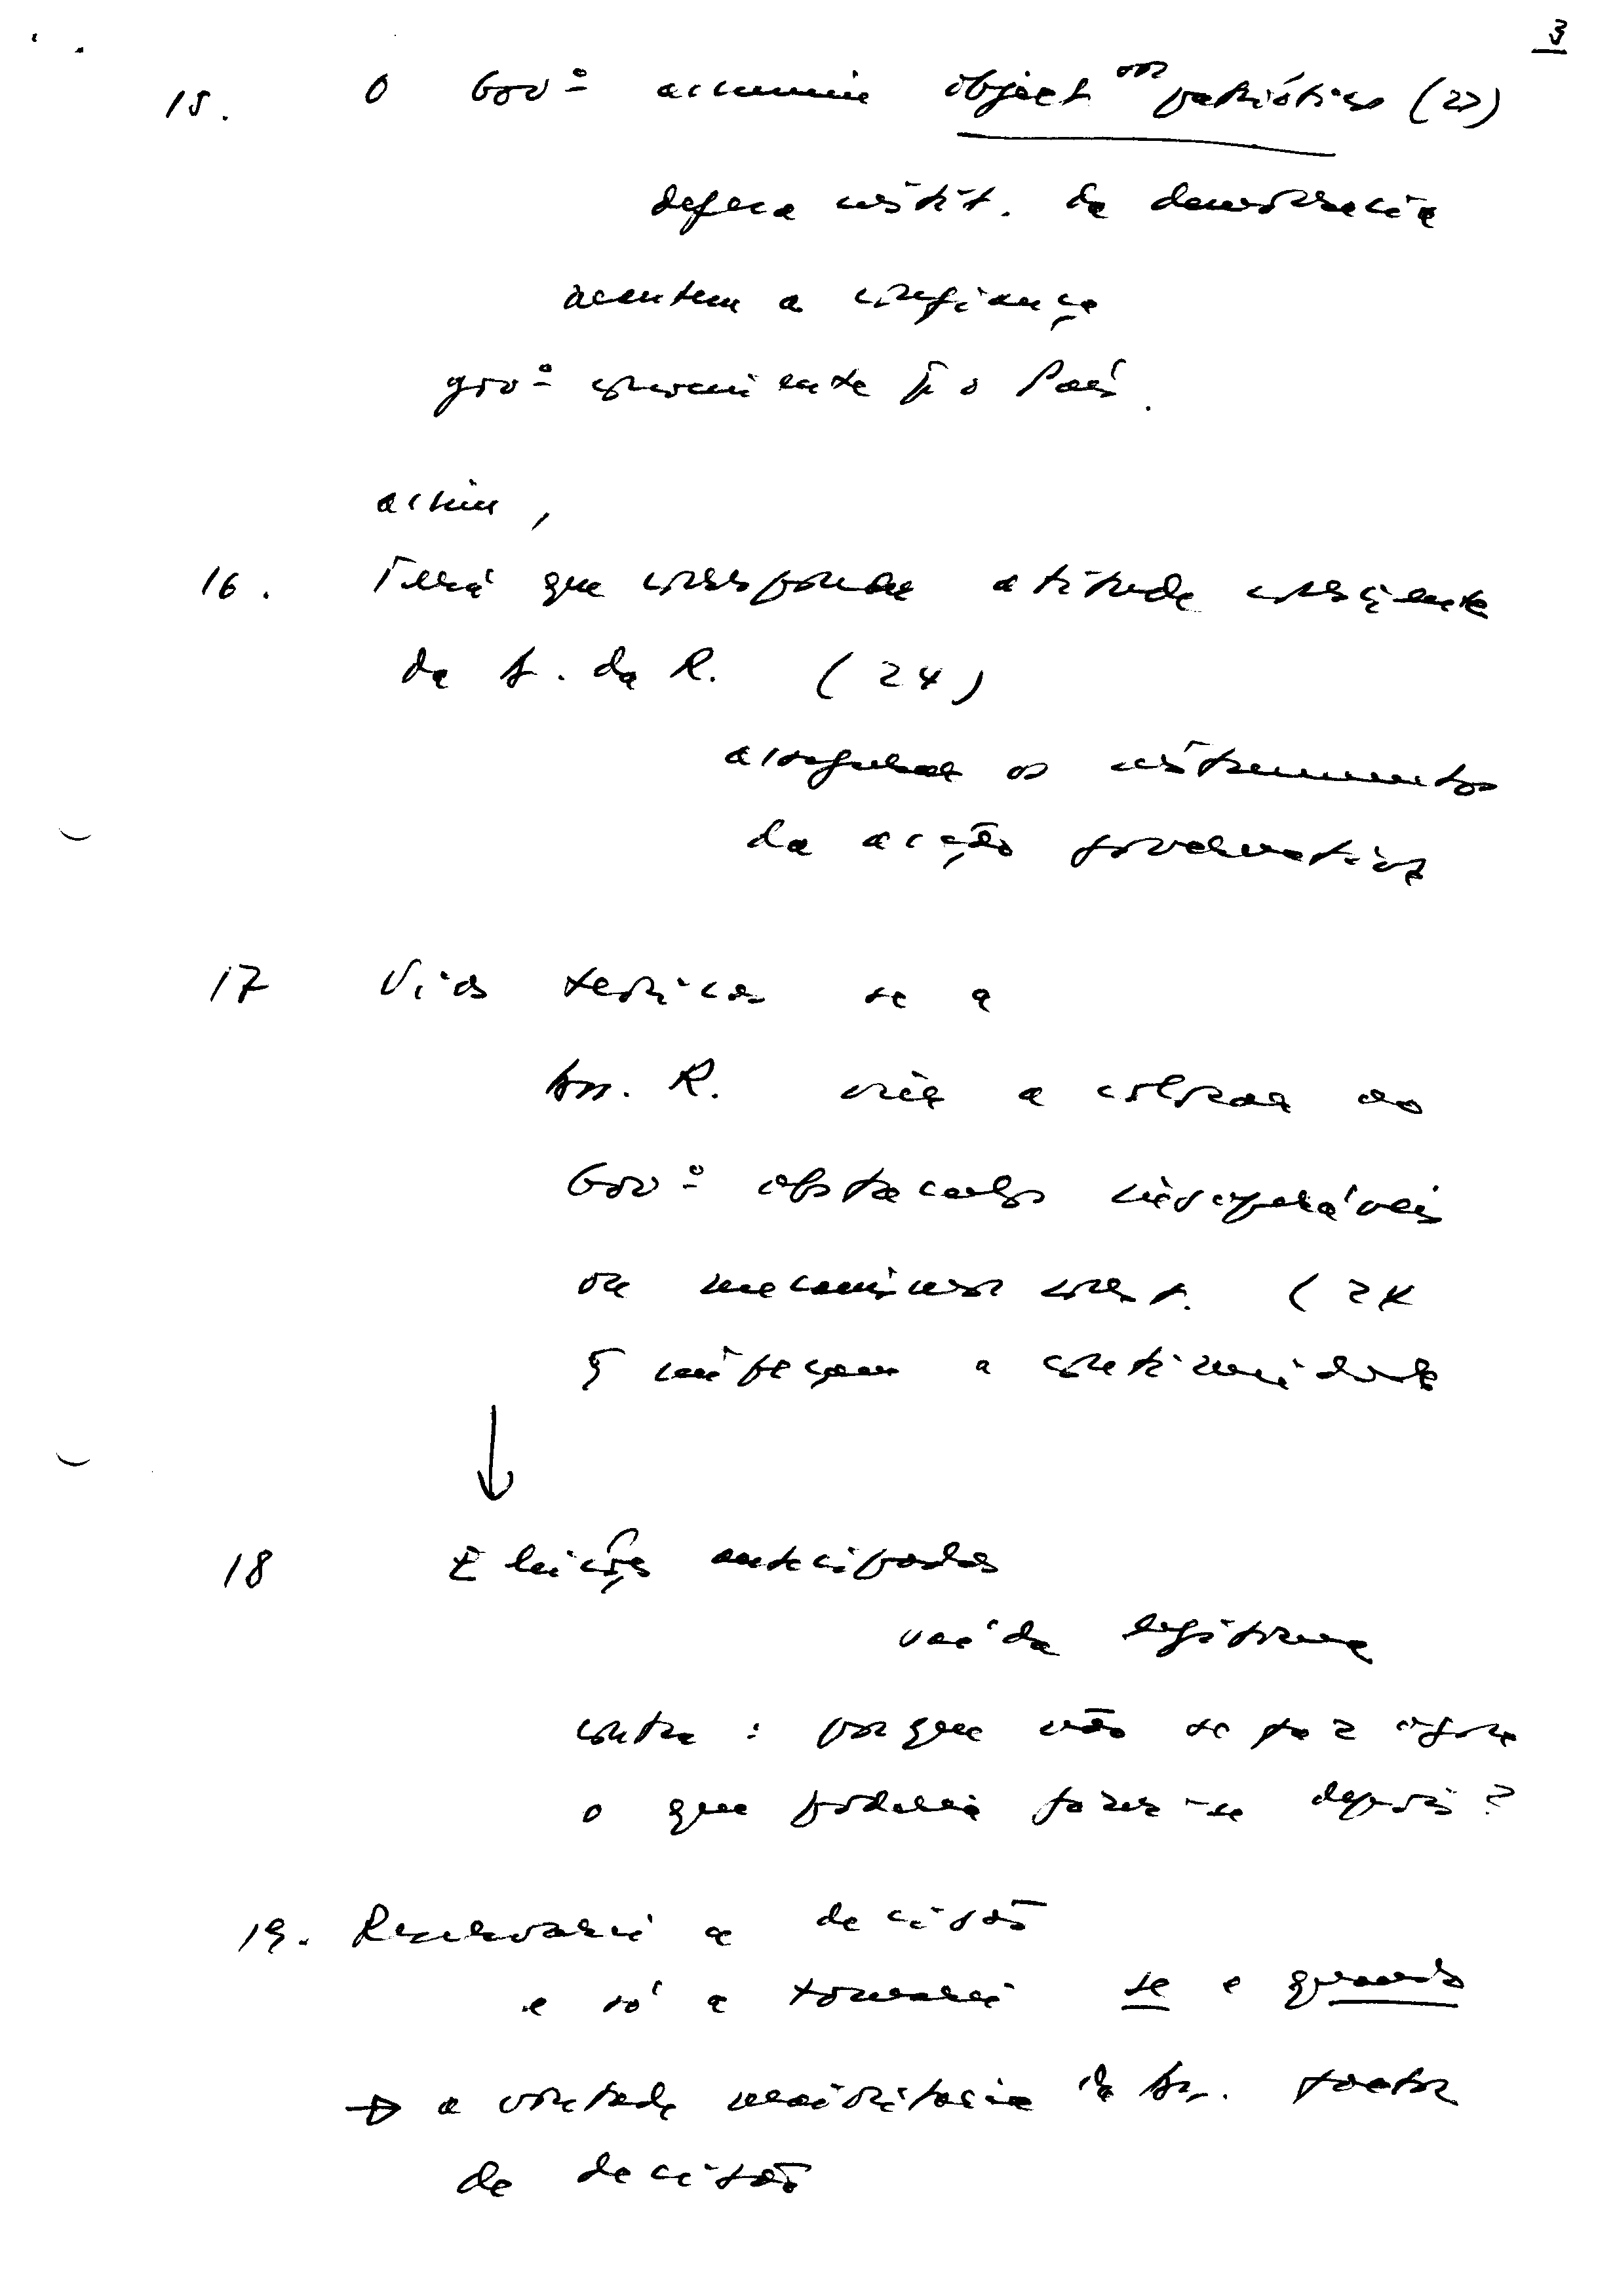 3
15. O Govº assume object os patrióticos (23)
defesa instit. da democracia
acentem a confiança
govº conveniente p. o País.
assim,
16. Terá que corresponder atitude consciente
da A. da R. (24)
assegurar os instrumentos
da acção governativa
17 Vias teóricas se a
Ass. R. vier a colocar ao
Govº obstáculos insuperáveis
ou mecanismos const. (2
q impeçam a continuidade
18 Eleições antecipadas
saída legítima
contra : porque não se faz agora
o que poderia fazer-se depois?
19. Reservarei a decisão
e só a tomarei se e quando
→ a vontade maioritária da Ass. factor
de decisão